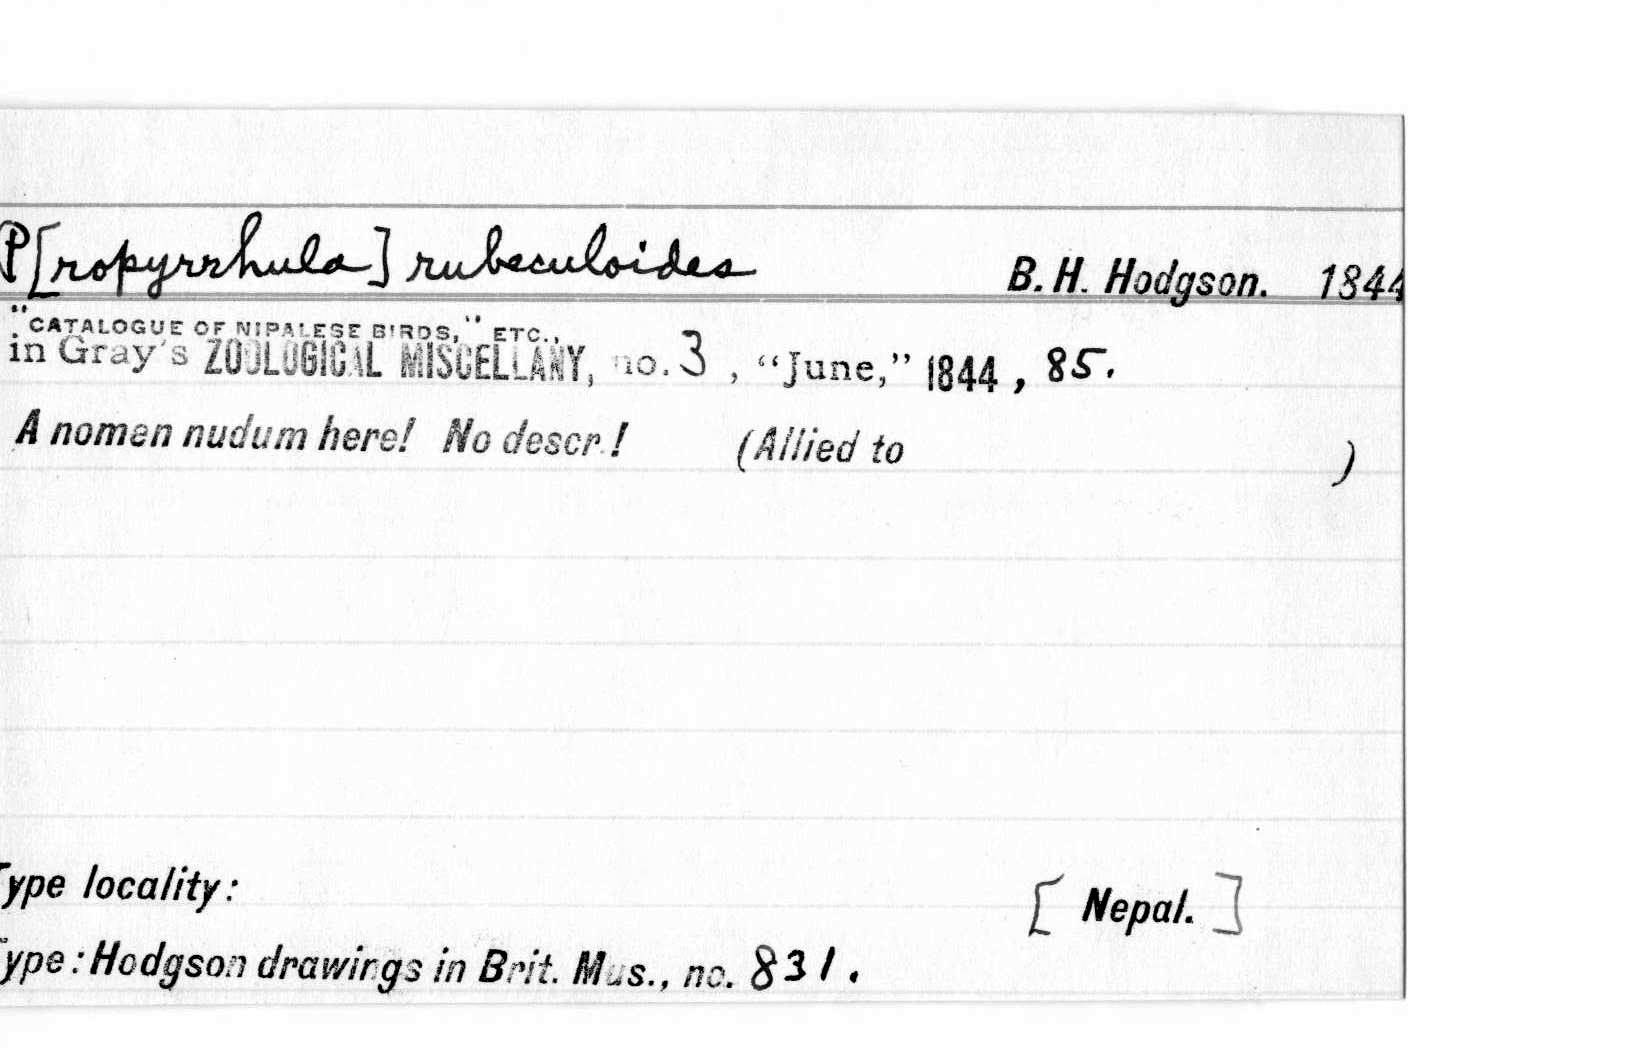 P[ropyrrhula] rubeculoides B. H. Hodgson. 1844
"CATALOGUE OF NIPALESE BIRDS," ETC.,
in Gray's ZOOLOGICAL MISCELLANY, no. 3, "June," 1844, 85.
A nomen nudum here! No descr.! (Allied to )
Type locality: [Nepal.]
Type: Hodgson drawings in Brit. Mus., no. 831.